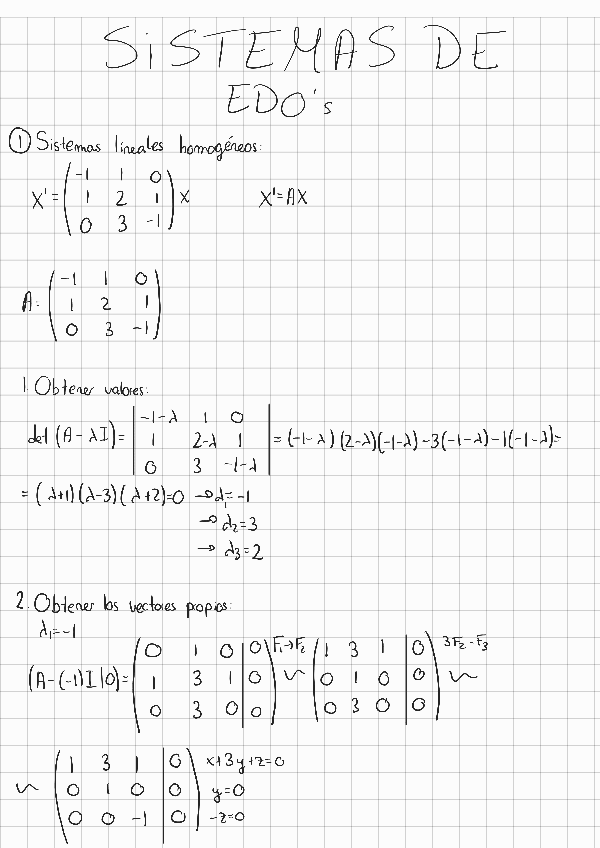 SiSTEMAS DE
EDO's
① Sistemas lineales homogéneos:
X' = ( -1 1 0 ) X X' = AX
( 1 2 1 )
( 0 3 -1 )
A: ( -1 1 0 )
( 1 2 1 )
( 0 3 -1 )
1. Obtener valores:
det (A - λI) = | -1-λ 1 0 | = (-1-λ) (2-λ)(-1-λ) -3(-1-λ) -1(-1-λ)=
| 1 2-λ 1 |
| 0 3 -1-λ |
= (λ+1)(λ-3)(λ+2)=0 → λ₁=-1
→ λ₂=3
→ λ₃=2
2. Obtener los vectores propios:
λ₁=-1
(A-(-1)I|0)= ( 0 1 0 | 0 ) F₁→F₂ ( 1 3 1 | 0 ) 3F₂-F₃
( 1 3 1 | 0 ) ~ ( 0 1 0 | 0 ) ~
( 0 3 0 | 0 ) ( 0 3 0 | 0 )
~ ( 1 3 1 | 0 ) x+3y+z=0
( 0 1 0 | 0 ) y=0
( 0 0 -1 | 0 ) -z=0